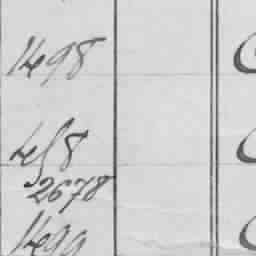 1498
458
2678
1499